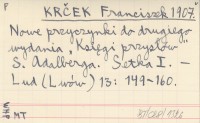 F
KRČEK Franciszek 1907.
Nowe przyczynki do drugiego
wydania „Księgi przysłów"
S. Adalberga. Setka I. —
Lud (Lwów) 13: 149-160.
MT